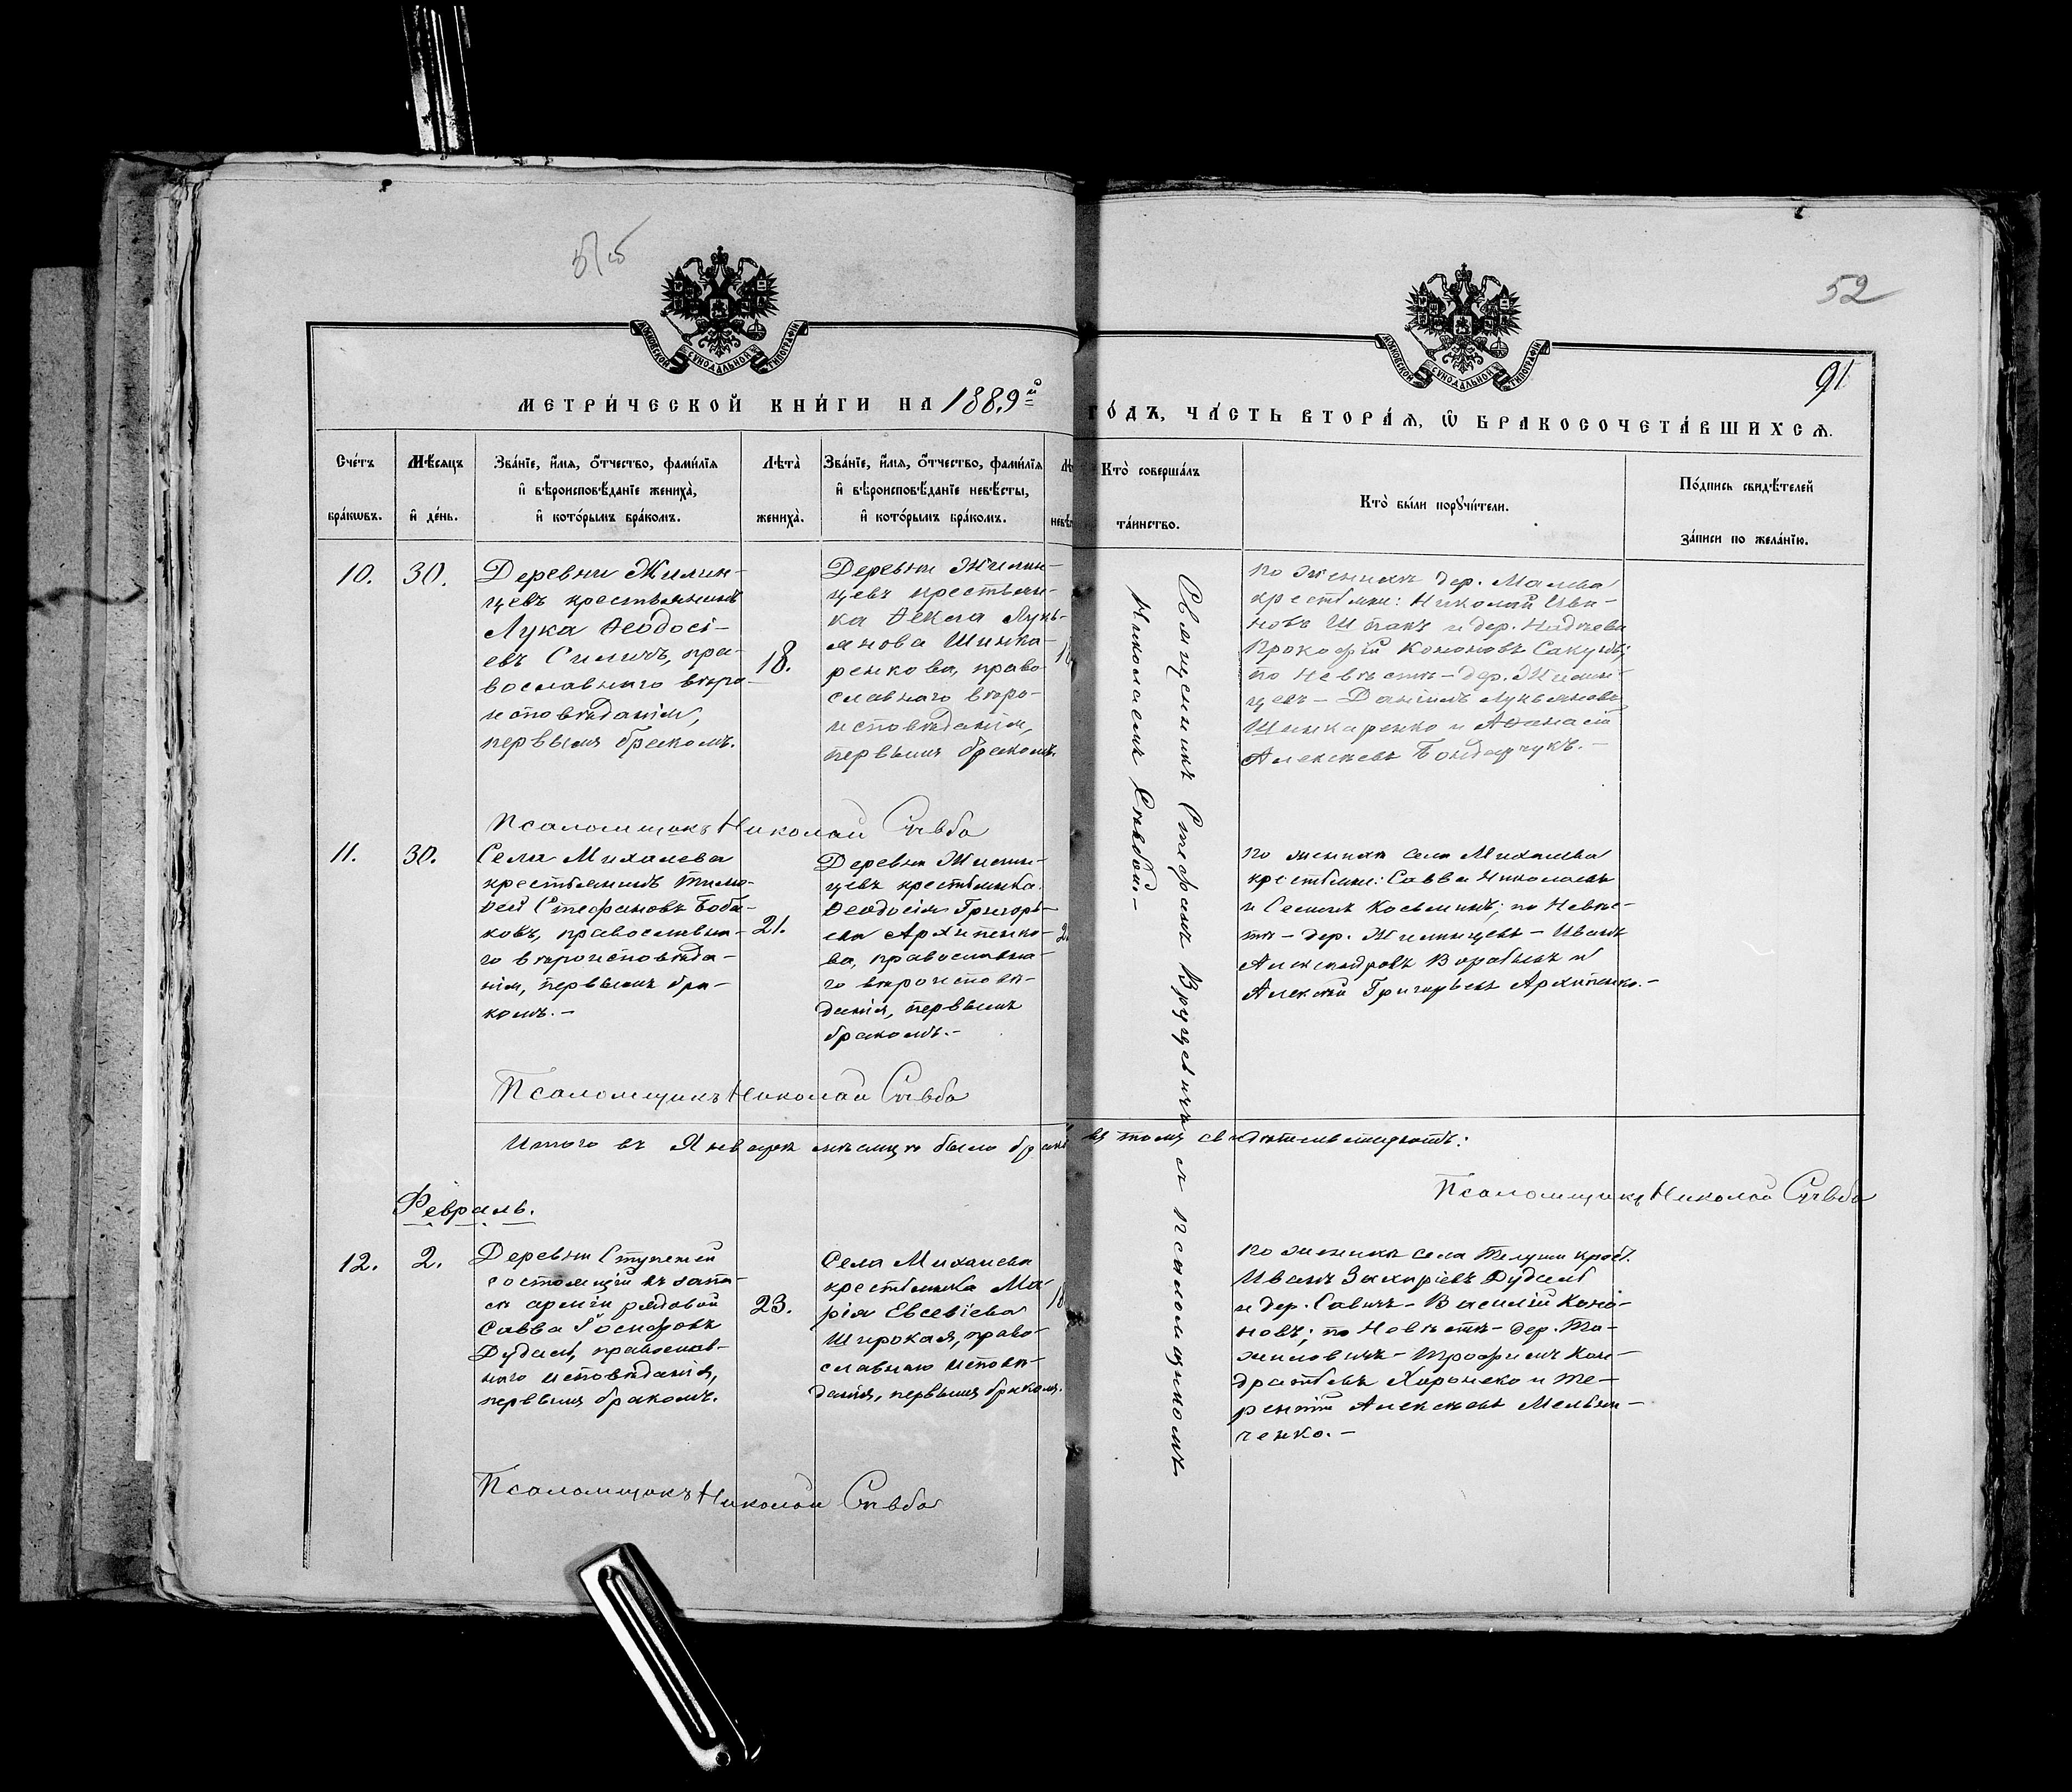 52
91
МОСКОВСКОЙ СѴНОДАЛЬНОЙ ТИПОГРАФІИ
МОСКОВСКОЙ СѴНОДАЛЬНОЙ ТИПОГРАФІИ
МЕТРИ́ЧЕСКОЙ КНИ́ГИ НА 1889й
ГО́ДЪ, ЧА́СТЬ ВТОРА́Ѧ, Ѽ БРАКОСОЧЕТА́ВШИХСѦ.
Сче́тъ бра́кѡвъ.
Мѣ́сяцъ и҆ де́нь.
Зва́нїе, и҆́мя, ѻ҆́тчество, фами́лїя
и҆ вѣроисповѣ́данїе жениха̀,
и҆ кото́рымъ бра́комъ.
Лѣта̀ жениха̀.
Зва́нїе, и҆́мя, ѻ҆́тчество, фами́лїя
и҆ вѣроисповѣ́данїе невѣ́сты,
и҆ кото́рымъ бра́комъ.
Кто̀ соверша́лъ
та́инство.
Кто̀ бы́ли порꙋчи́тели.
По́дпись свидѣ́телей
за́писи по жела́нїю.
10.
30.
Деревни Жилин-
цевъ крестьянинъ
Лука Ѳеодосі-
евъ Силичъ, пра-
вославнаго вѣро-
исповѣданія,
первымъ бракомъ.
18.
Деревни Жилин-
цевъ крестьян-
ка Ѳекла Лукь-
янова Шинка-
ренкова, право-
славнаго вѣро-
исповѣданія,
первымъ бракомъ.
Священникъ Стефанъ Вруцевичъ съ псаломщикомъ
Николаемъ Сѣвбой.-
по женихѣ дер. Малева
крестьяне: Николай Ива-
новъ Шпакъ и дер. Надѣева
Прокофій Кононовъ Сакунъ;
по Невѣстѣ - дер. Жилин-
цевъ - Даніилъ Лукьяновъ
Шинкаренко и Аѳанасій
Алексѣевъ Бондарчукъ.-
Псаломщикъ Николай Сѣвба
11.
30.
Села Михалева
крестьянинъ Тимо-
ѳей Стефановъ Боба-
ковъ, православна-
го вѣроисповѣда-
нія, первымъ бра-
комъ.-
21.
Деревни Жилин-
цевъ крестьянка
Ѳеодосія Григорь-
ева Архипенко-
ва, православна-
го вѣроисповѣ-
данія, первымъ
бракомъ.-
по женихѣ села Михалева
крестьяне: Савва Николаевъ
и Семенъ Косьминъ; по Невѣс-
тѣ - дер. Жилинцевъ - Иванъ
Александровъ Воробьевъ и
Алексѣй Григорьевъ Архипенко.-
Псаломщикъ Николай Сѣвба
Итого въ Январѣ мѣсяцѣ было
Псаломщикъ Николай Сѣвба
Февраль.
12.
2.
Деревни Ступеней
состоящій въ запа-
сѣ арміи рядовой
Савва Іосифовъ
Дудаль, православ-
наго исповѣданія,
первымъ бракомъ.
23.
Села Михалева
крестьянка Ма-
рія Евсевіева
Широкая, право-
славнаго исповѣ-
данія, первымъ бракомъ.
по женихѣ села Телуши
Иванъ Захаріевъ Дудаль
и дер. Савичъ - Василій Коно-
новъ; по Невѣстѣ - дер. То-
миловичъ - Трофимъ Кон-
дратьевъ Хоронеко и Те-
рентій Алексѣевъ Мельни-
ченко.-
Псаломщикъ Николай Сѣвба